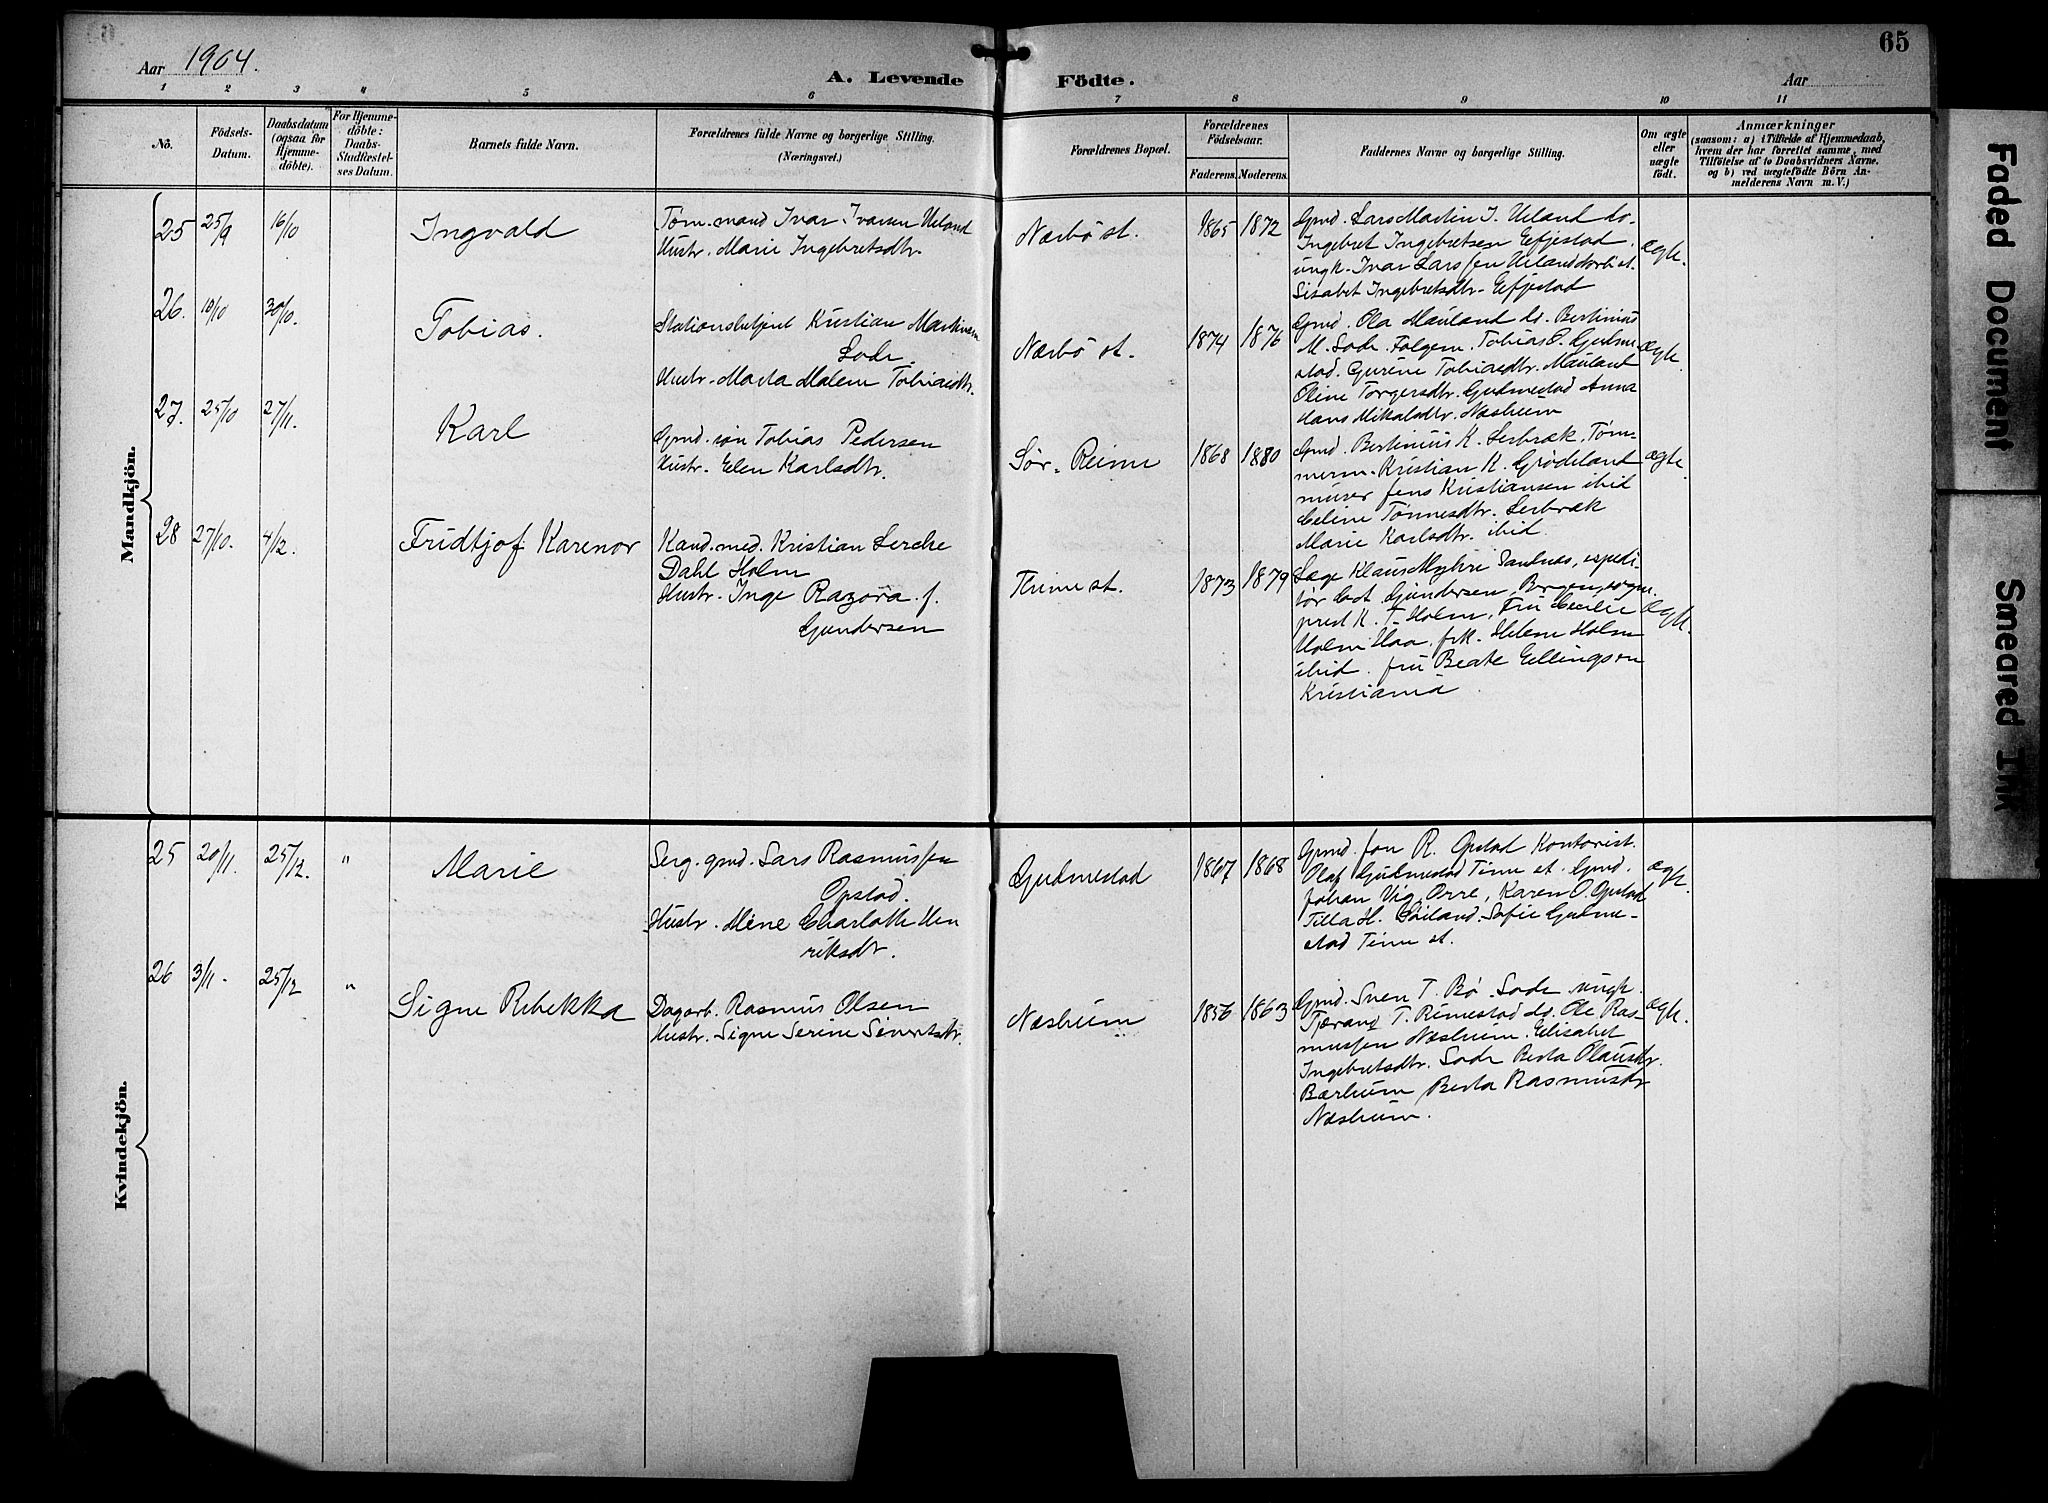 Aar 1904.
A. Levende Födte.
Aar
65
1 2 3 4 5 6 7 8 9 10 11
No.
Födsels-
Datum.
Daabsdatum
(ogsaa for
Hjemme-
döbte).
For Hjemme-
döbte:
Daabs-
Stadfæstel-
ses Datum.
Barnets fulde Navn.
Forældrenes fulde Navne og borgerlige Stilling.
(Næringsvei.)
Forældrenes Bopæl.
Forældrenes
Födselsaar.
Faderens. Moderens.
Faddernes Navne og borgerlige Stilling.
Om ægte
eller
uægte
födt.
Anmærkninger
(saasom: a) i Tilfælde af Hjemmedaab,
hvem der har forrettet samme, med
Tilföielse af to Daabsvidners Navne,
og b) ved uægtefödte Börn An-
melderens Navn m. V.)
Mandkjön.
25 25/9 16/10
Ingvald
Töm.mand Ivar Ivarsen Ueland
Hustr. Marie Ingebretsdtr.
Nærbö st.
1865 1872
Gmd. Lars Martin I. Ueland do.
Ingebret Ingebretsen Eefjestad.
ungk. Ivar Larssen Ueland
Lisabet Ingebretsdtr. Eefjestad
ægte.
26. 10/10 30/10.
Tobias.
Stationsbetjent Kristian Martinsen
Lode.
Hustr. Marta Malene Tobiasdtr.
Nærbö st.
1874 1876
Gmd. Ola Mauland do. Bertinius
M. Lode. Følgem. Tobias O. Gudme
stad. Gurine Tobiasdtr. Mauland
Oline Torgersdtr. Gudmestad Anna
Mikalsdtr. Næsheim
ægte
27. 25/10 27/11.
Karl
Gmd. søn Tobias Pedersen
Hustr. Elen Karlsdtr.
Sør. Reime
1868 1880
Gmd. Bertinius K. Serbræk. Töm-
merm. Kristian K. Grødeland
murer Jens Kristiansen ibid
Celine Tønnesdtr. Serbræk
Marie Karlsdtr. ibid.
ægte.
28 27/10. 4/12.
Fridtjof Karenor
Kand. med. Kristian Lerche
Dahl Holm
Hustr. Inge Razora f.
Gundersen
Thime st.
1873 1879
Læge Klaus Myhre Sandnes, expedi-
tør Gundersen, Bergen, sogne
prest K. T. Holm, Fru Cecilie
Holm Haa. frk. Helene Holm
ibid. fru Beate Ellingsen
Kristiania
ægte.
Kvindekjön.
25 20/11. 25/12. "
Marie
Serg. gmd. Lars Rasmussen
Opstad.
Hustr. Mine Charlotte Hen
riksdtr.
Gudmestad
1867 1868
Gmd. Jon R. Opstad Kontorist.
Olaf Gudmestad Time st. Gmd.
Johan Vig, Orre, Karen O. Opstad
Tilla H. Söiland. Sofie Gudme-
stad Time st.
ægte.
26 3/11. 25/12 "
Signe Rebekka
Dagarb. Rasmus Olsen
Hustr. Signe Serine Sivertsdtr.
Næsheim
1856 1863
Gmd. Sven T. Bø. Lode ungk.
Tjærand T. Rimestad do. Ole Ras-
mussen Næsheim. Elisabet
Ingebretsdtr. Lode Berta Olausdtr.
Bærheim Berta Rasmusdtr
Næsheim.
ægte.
Faded Document
Smeared Ink